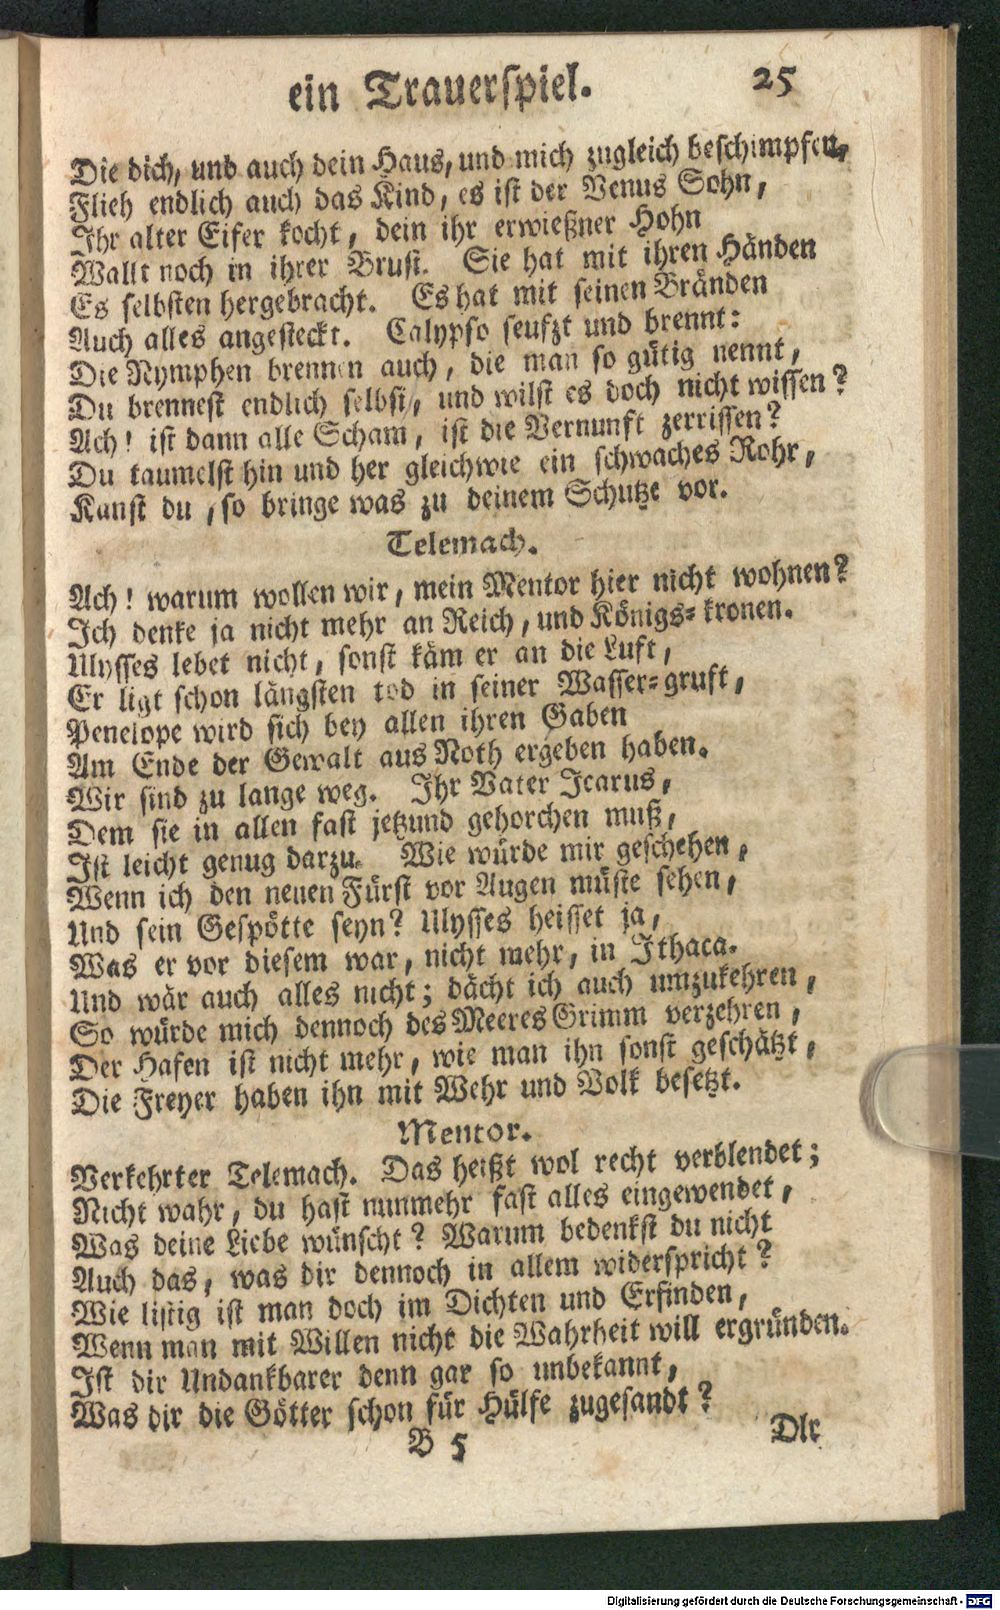 ein Trauerspiel. 25
Die dich, und auch dein Haus, und mich zugleich beschimpfen,
Flieh endlich auch das Kind, es ist der Venus Sohn,
Ihr alter Eifer kocht, dein ihr erwießner Hohn
Wallt noch in ihrer Brust. Sie hat mit ihren Händen
Es selbsten hergebracht. Es hat mit seinen Bränden
Auch alles angesteckt. Calypso seufzt und brennt:
Die Nymphen brennen auch, die man so gütig nennt,
Du brennest endlich selbst, und wilst es doch nicht wissen?
Ach! ist dann alle Scham, ist die Vernunft zerrissen?
Du taumelst hin und her gleichwie ein schwaches Rohr,
Kanst du, so bringe was zu deinem Schutze vor.
Telemach.
Ach! warum wollen wir, mein Mentor hier nicht wohnen?
Ich denke ja nicht mehr an Reich, und Königs-kronen.
Ulysses lebet nicht, sonst käm er an die Luft,
Er ligt schon längsten tod in seiner Wasser-gruft,
Penelope wird sich bey allen ihren Gaben
Am Ende der Gewalt aus Noth ergeben haben.
Wir sind zu lange weg. Ihr Vater Icarus,
Dem sie in allen fast jetzund gehorchen muß,
Ist leicht genug darzu. Wie würde mir geschehen,
Wenn ich den neuen Fürst vor Augen müste sehen,
Und sein Gespötte seyn? Ulysses heisset ja,
Was er vor diesem war, nicht mehr, in Ithaca.
Und wär auch alles nicht; dächt ich auch umzukehren,
So würde mich dennoch des Meeres Grimm verzehren,
Der Hafen ist nicht mehr, wie man ihn sonst geschätzt,
Die Freyer haben ihn mit Wehr und Volk besetzt.
Mentor.
Verkehrter Telemach. Das heißt wol recht verblendet;
Nicht wahr, du hast nunmehr fast alles eingewendet,
Was deine Liebe wünscht? Warum bedenkst du nicht
Auch das, was dir dennoch in allem widerspricht?
Wie listig ist man doch im Dichten und Erfinden,
Wenn man mit Willen nicht die Wahrheit will ergründen.
Ist dir Undankbarer denn gar so unbekannt,
Was dir die Götter schon für Hülfe zugesandt?
B 5 Dir
Digitalisierung gefördert durch die Deutsche Forschungsgemeinschaft - DFG